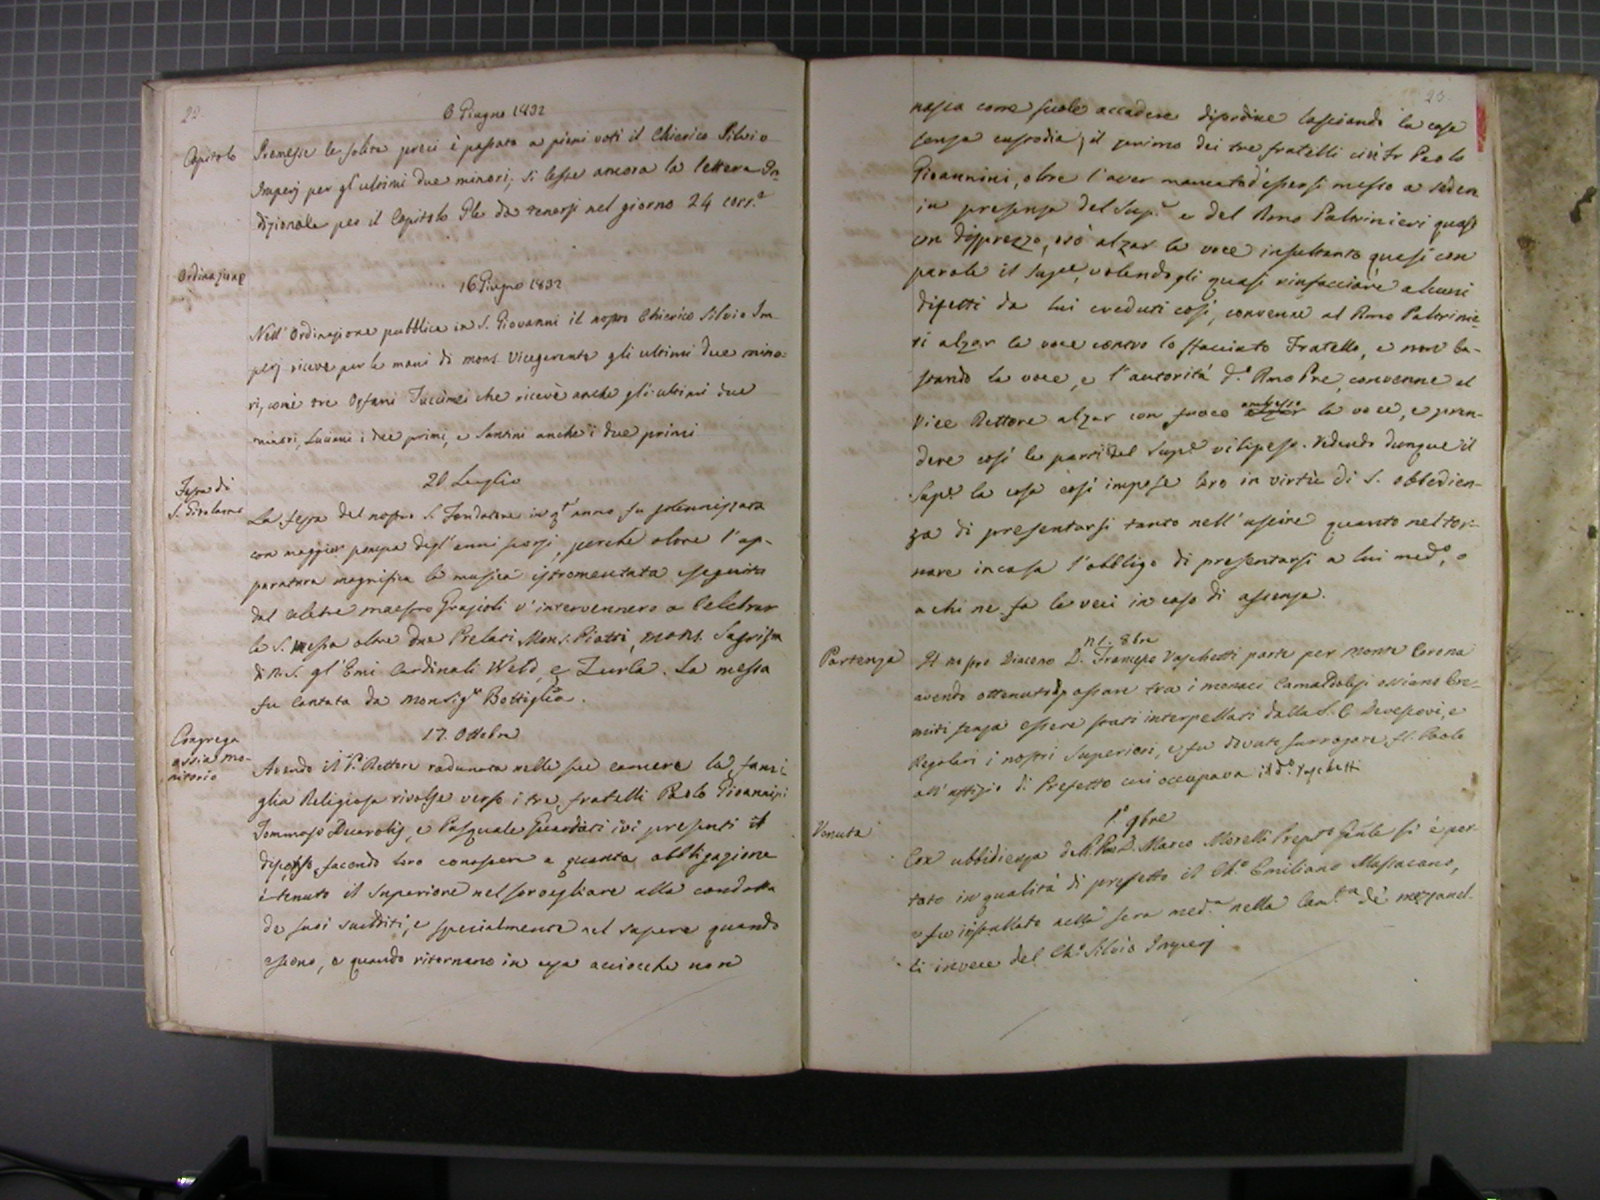 23
6 Giugno 1832
Capitolo
Premesse le solite preci è passato a pieni voti il Chierico Silvio
Imperj per gl'ultimi due minori; si lesse ancora la lettera In-
dizionale per il Capitolo Gle da tenersi nel giorno 24 corr.e
Ordinazione
16 Giugno 1832
Nell'Ordinazione pubblica in S. Giovanni il nostro Chierico Silvio Im
perj riceve per le mani di mons. Vicegerente gli ultimi due mino:
ri, come tre Orfani Tuccimei che ricevè anche gli ultimi due
minori, Luciani i due primi, e Santini anche i due primi
20 Luglio
Festa di
S. Girolamo
La festa del nostro S. Fondatore in qt anno fu solennizzata
con maggior pompa degl'anni scorsi, perchè oltre l'ap-
paratura magnifica la musica istromentata eseguita
dal celebre maestro Grazioli v'intervennero a Celebrar
la S. Messa oltre due Prelati Mons. Piatti, mons. Sagrista
di N.S. gl'Emi Cardinali Weld, e Zurla. La messa
fu Cantata da Monsig.r Bottiglia.
17. Ottobre
Congrega
ossia mo-
nitorio
Avendo il P. Rettore radunata nelle sue camere la fami-
glia Religiosa rivolse verso i tre fratelli Paolo Gioannini
Tommaso Decarolis, e Pasquale Guardati ivi presenti il
discorso, facendo loro conoscere a quanta obbligazione
è tenuto il Superiore nel sorvegliare alla condotta
de suoi sudditi, e specialmente nel sapere quando
escono, e quando ritornano in casa acciocchè non
23.
nasca come suole accadere disordine lasciando la casa
senza custodia; il primo dei tre fratelli cioè Fr Paolo
Gioannini, oltre l'aver mancato d'essersi messo a sedere
in presenza del Sup.e e del Rmo Paltrinieri quasi
con disprezzo, osò alzar la voce insultante quasi con
parole il Supe, volendogli quasi rinfacciare alcuni
difetti da lui creduti così, convenne al Rmo Paltrinie-
ri alzar la voce contro lo sfacciato Fratello, e non ba-
stando la voce, e l'autorità d.o Rmo Pre, convenne al
Vice Rettore alzar con fuoco anch'esso la voce, e pren-
dere così le parti del Supe vilipeso. Vedendo dunque il
Supe la cosa così impose loro in virtù di S. obbedien-
za di presentarsi tanto nell'uscire quanto nel tor-
nare in casa l'obbligo di presentarsi a lui med.o, o
a chi ne fa le veci in caso di assenza.
8bre
Partenza
Il nostro Diacono D. Francesco Vaschetti parte per Monte Corona
avendo ottenuto di passare tra i monaci Camaldolesi ossiano Ere-
miti senza essere stati interpellati dalla S. C. De Vescovi, e
Regolari i nostri Superiori, e fu dovuto surrogare Fr. Paolo
all'uffizio di Prefetto cui occupava il d.o Vaschetti
1.o 9bre
Venuta
Con ubbidienza del Rmo D. Marco Morelli Prepto Gnle si è por-
tato in qualità di prefetto il Ch.o Emiliano Mussacano,
e fu installato nella sera med.a nella Cam.ta de' mezzanel-
li invece del Ch.o Silvio Imperj